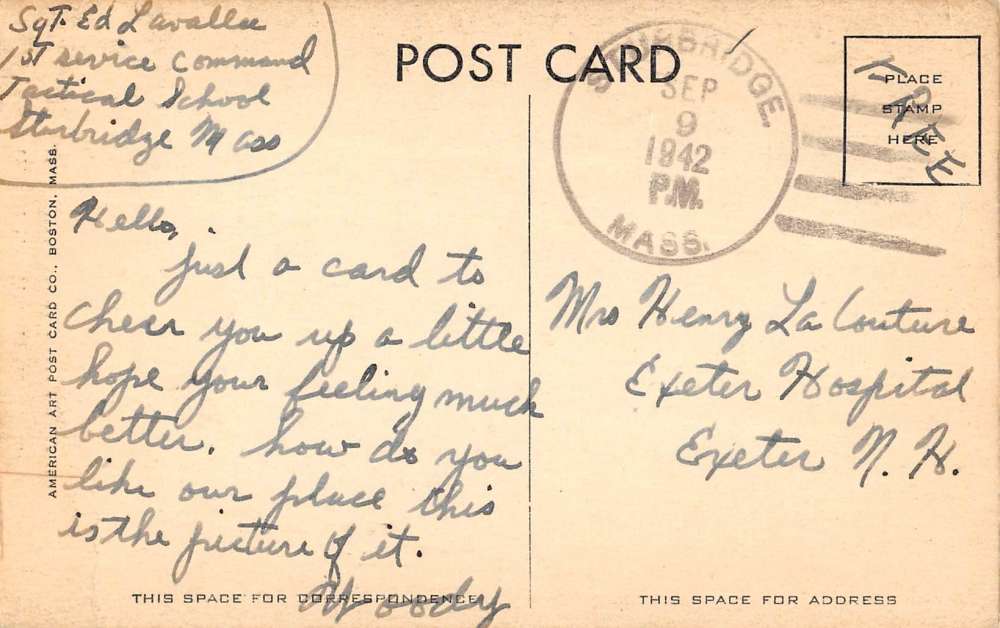 Sgt. Ed Lavallee
1st service command
Tactical School
Sturbridge Mass
POST CARD
STURBRIDGE.
SEP
9
1942
P.M.
MASS.
PLACE
STAMP
HERE
FREE
AMERICAN ART POST CARD CO., BOSTON, MASS.
Hello,
just a card to
cheer you up a little
hope your feeling much
better. how do you
like our place this
is the picture of it.
Woody
Mrs Henry La Couture
Exeter Hospital
Exeter N. H.
THIS SPACE FOR CORRESPONDENCE
THIS SPACE FOR ADDRESS